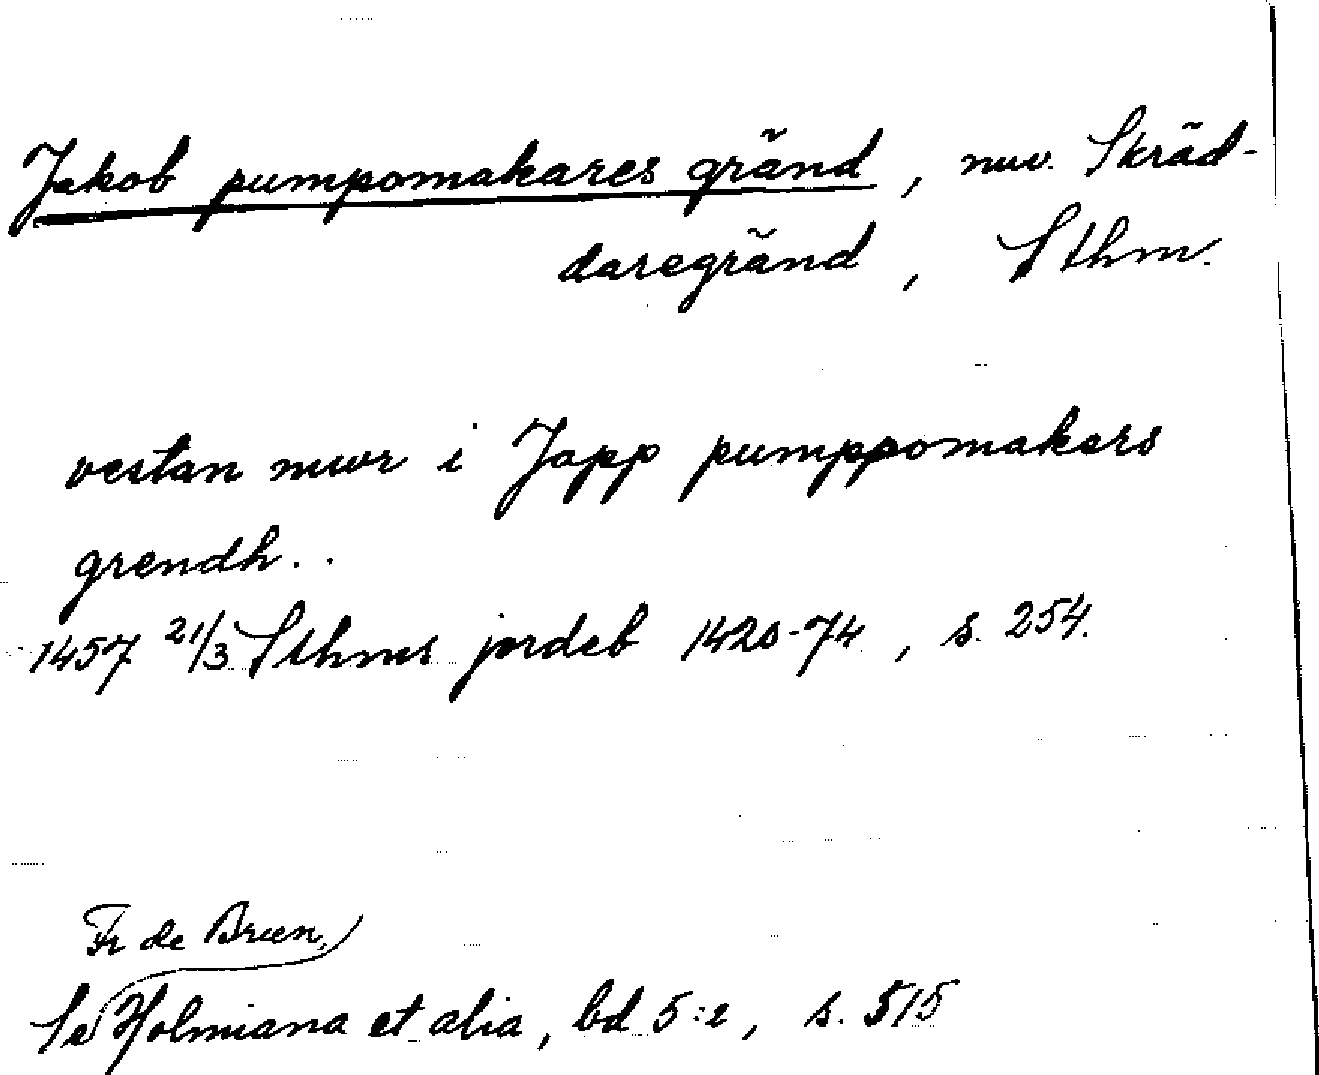 Jakob pumpomakares gränd, nuv. Skräd-
daregränd, Sthm.
vestan mwr i Japp pumppomakers
grendh..
1457 21/3 Sthms jordeb 1420-74, s. 254.
Fr de Brun,
Se Holmiana et alia, bd 5:2, s. 515